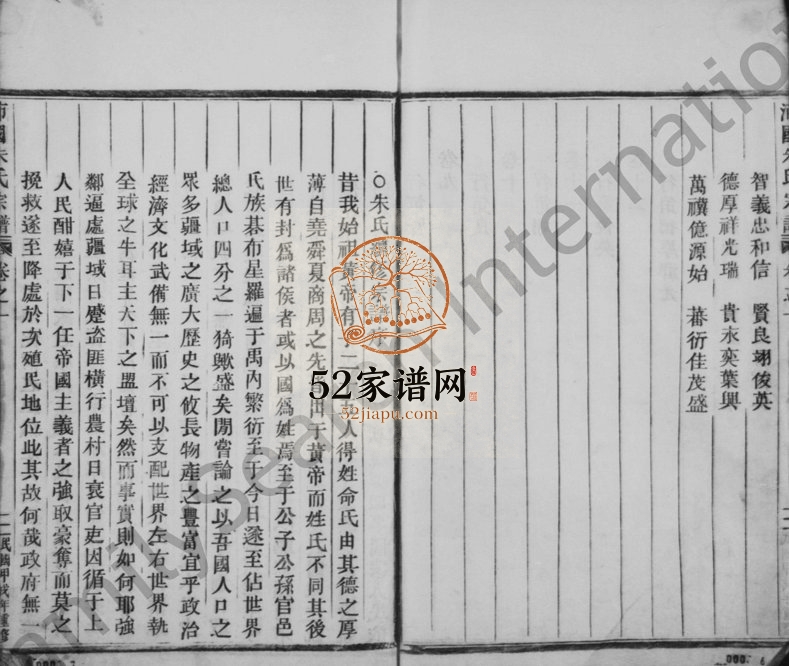 沛國朱氏宗譜
智義忠和信 賢良翊俊英
德厚祥光瑞 貴永奕葉興
萬禩億源始 蕃衍佳茂盛
○朱氏修宗
昔我始祖黃帝有二人得姓命氏由其德之厚
薄自堯舜夏商周之先出于黃帝而姓氏不同其後
世有封爲諸侯者或以國爲姓焉至于公子公孫官邑
氏族碁布星羅遍于禹內繁衍至于今日遂至佔世界
總人口四分之一猗歟盛矣閒嘗論之以吾國人口之
眾多疆域之廣大歷史之攸長物產之豐富宜乎政治
經濟文化武備無一而不可以支配世界左右世界執
全球之牛耳主天下之盟壇矣然而事實則如何耶強
鄰逼處疆域日蹙盗匪橫行農村日衰官吏因循于上
人民酣嬉于下一任帝國主義者之強取豪奪而莫之
挽救遂至降處於次殖民地位此其故何哉政府無一
沛國朱氏宗譜 卷之一
民國甲戌年重修
52家谱网
52jiapu.com
FamilySearch International
000 6
000 7